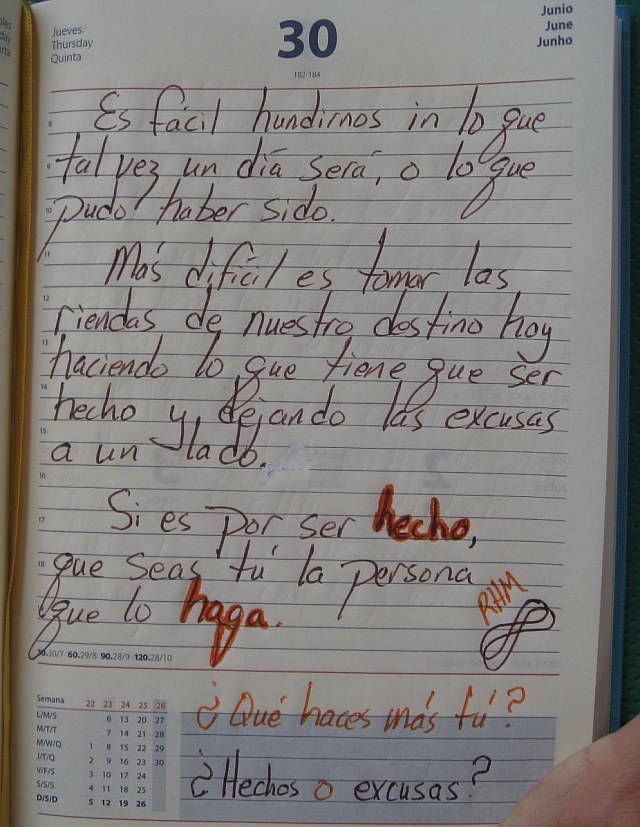 Jueves
Thursday
Quinta
30
182-184
Junio
June
Junho
8
Es fácil hundirnos in lo que
9
tal vez un día será, o lo que
10
pudo haber sido.
11
Más difícil es tomar las
12
riendas de nuestro destino hoy
13
haciendo lo que tiene que ser
14
hecho y dejando las excusas
15
a un lado.
16
17
Si es por ser hecho,
18
que seas tú la persona
que lo haga.
RHM
30.30/7 60.29/8 90.28/9 120.28/10
Semana 22 23 24 25 26
L/M/S 6 13 20 27
M/T/T 7 14 21 28
M/W/Q 1 8 15 22 29
J/T/Q 2 9 16 23 30
V/F/S 3 10 17 24
S/S/S 4 11 18 25
D/S/D 5 12 19 26
¿Qué haces más tú?
¿Hechos o excusas?